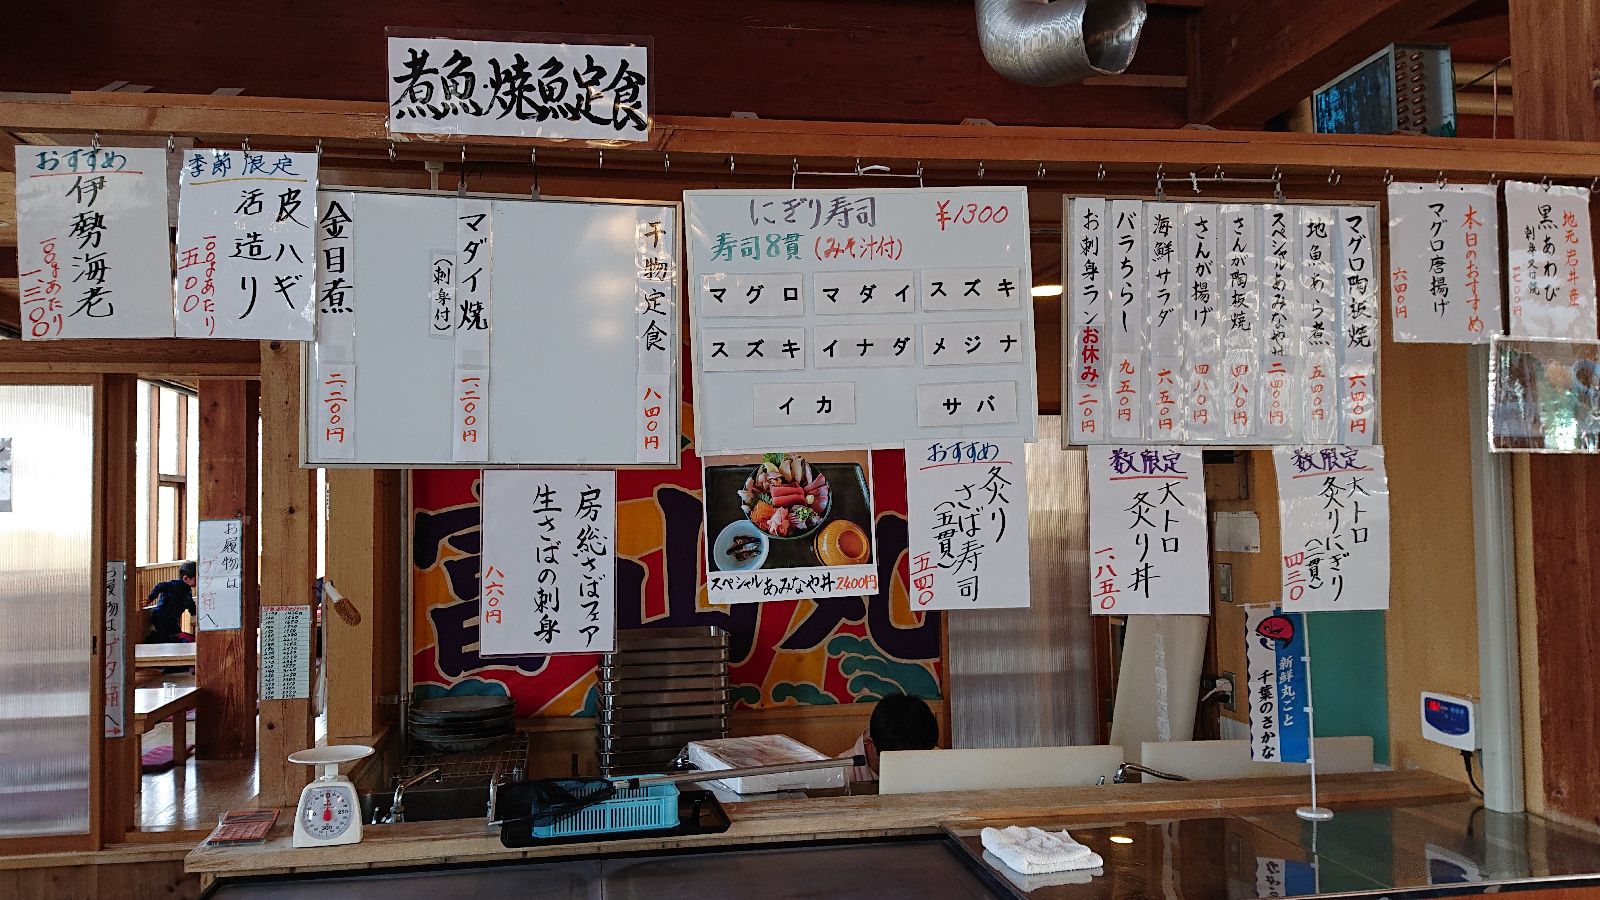 煮魚・焼魚定食
おすすめ
伊勢海老
100gあたり
一、三〇〇
季節限定
皮ハギ
活造り
100gあたり
五〇〇
金目煮
二、二〇〇円
マダイ焼
(刺身付)
一、二〇〇円
干物定食
八四〇円
にぎり寿司
¥1300
寿司8貫(みそ汁付)
マグロ
マダイ
スズキ
スズキ
イナダ
メジナ
イカ
サバ
マグロ陶板焼
六四〇円
地魚あら煮
五四〇円
スペシャルあみなや丼
二四〇〇円
さんが陶板焼
四八〇円
さんが揚げ
四八〇円
海鮮サラダ
六五〇円
バラちらし
九五〇円
お刺身ラン
お休み
二〇円
本日のおすすめ
マグロ唐揚げ
六四〇円
地元岩井産
黒あわび
刺身又は焼
房総さばフェア
生さばの刺身
八六〇円
スペシャルあみなや丼2400円
おすすめ
炙り
さば寿司
(五貫)
五四〇
数限定
大トロ
炙り丼
一、八五〇
数限定
大トロ
炙りにぎり
(二貫)
四三〇
富山丸
お履物は
ゲタ箱へ。
お履物はゲタ箱へ
新鮮丸ごと
千葉のさかな